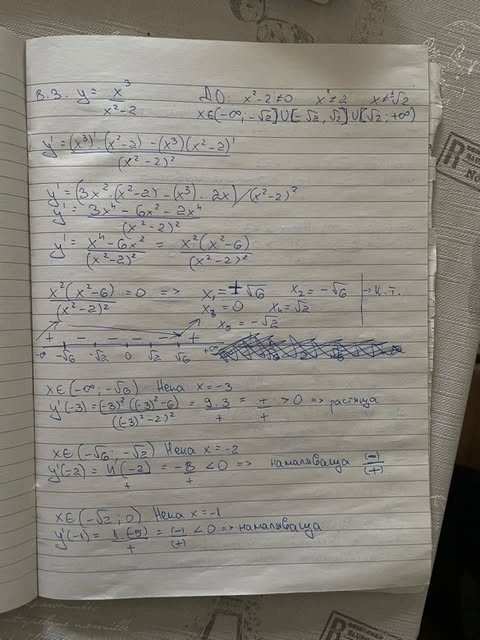 в.3. y = x³/(x²-2) ДО: x²-2≠0 x²≠2 x≠±√2
x∈(-∞;-√2]∪[-√2,√2]∪[√2;+∞)
y' = ((x³)'.(x²-2) - (x³)(x²-2)')/(x²-2)²
y' = (3x².(x²-2) - (x³).2x)/(x²-2)²
y' = (3x⁴-6x²-2x⁴)/(x²-2)²
y' = (x⁴-6x²)/(x²-2)² = x²(x²-6)/(x²-2)²
x²(x²-6)/(x²-2)² = 0 => x₁=±√6 x₂=-√6 → к.т.
x₃=0 x₄=√2
x₅=-√2
+ - - - - +
-∞ -√6 -√2 0 √2 √6 +∞
x∈(-∞;-√6) Нека x=-3
y'(-3) = (-3)²((-3)²-6)/((-3)²-2)² = 9.3/+ = +/+ > 0 => растяща
x∈(-√6;-√2) Нека x=-2
y'(-2) = 4(-2)/+ = -8/+ < 0 => намаляваща (-)/(+)
x∈(-√2;0) Нека x=-1
y'(-1) = 1(-5)/+ = (-)/(+) < 0 => намаляваща
R
R
RESTAURANT